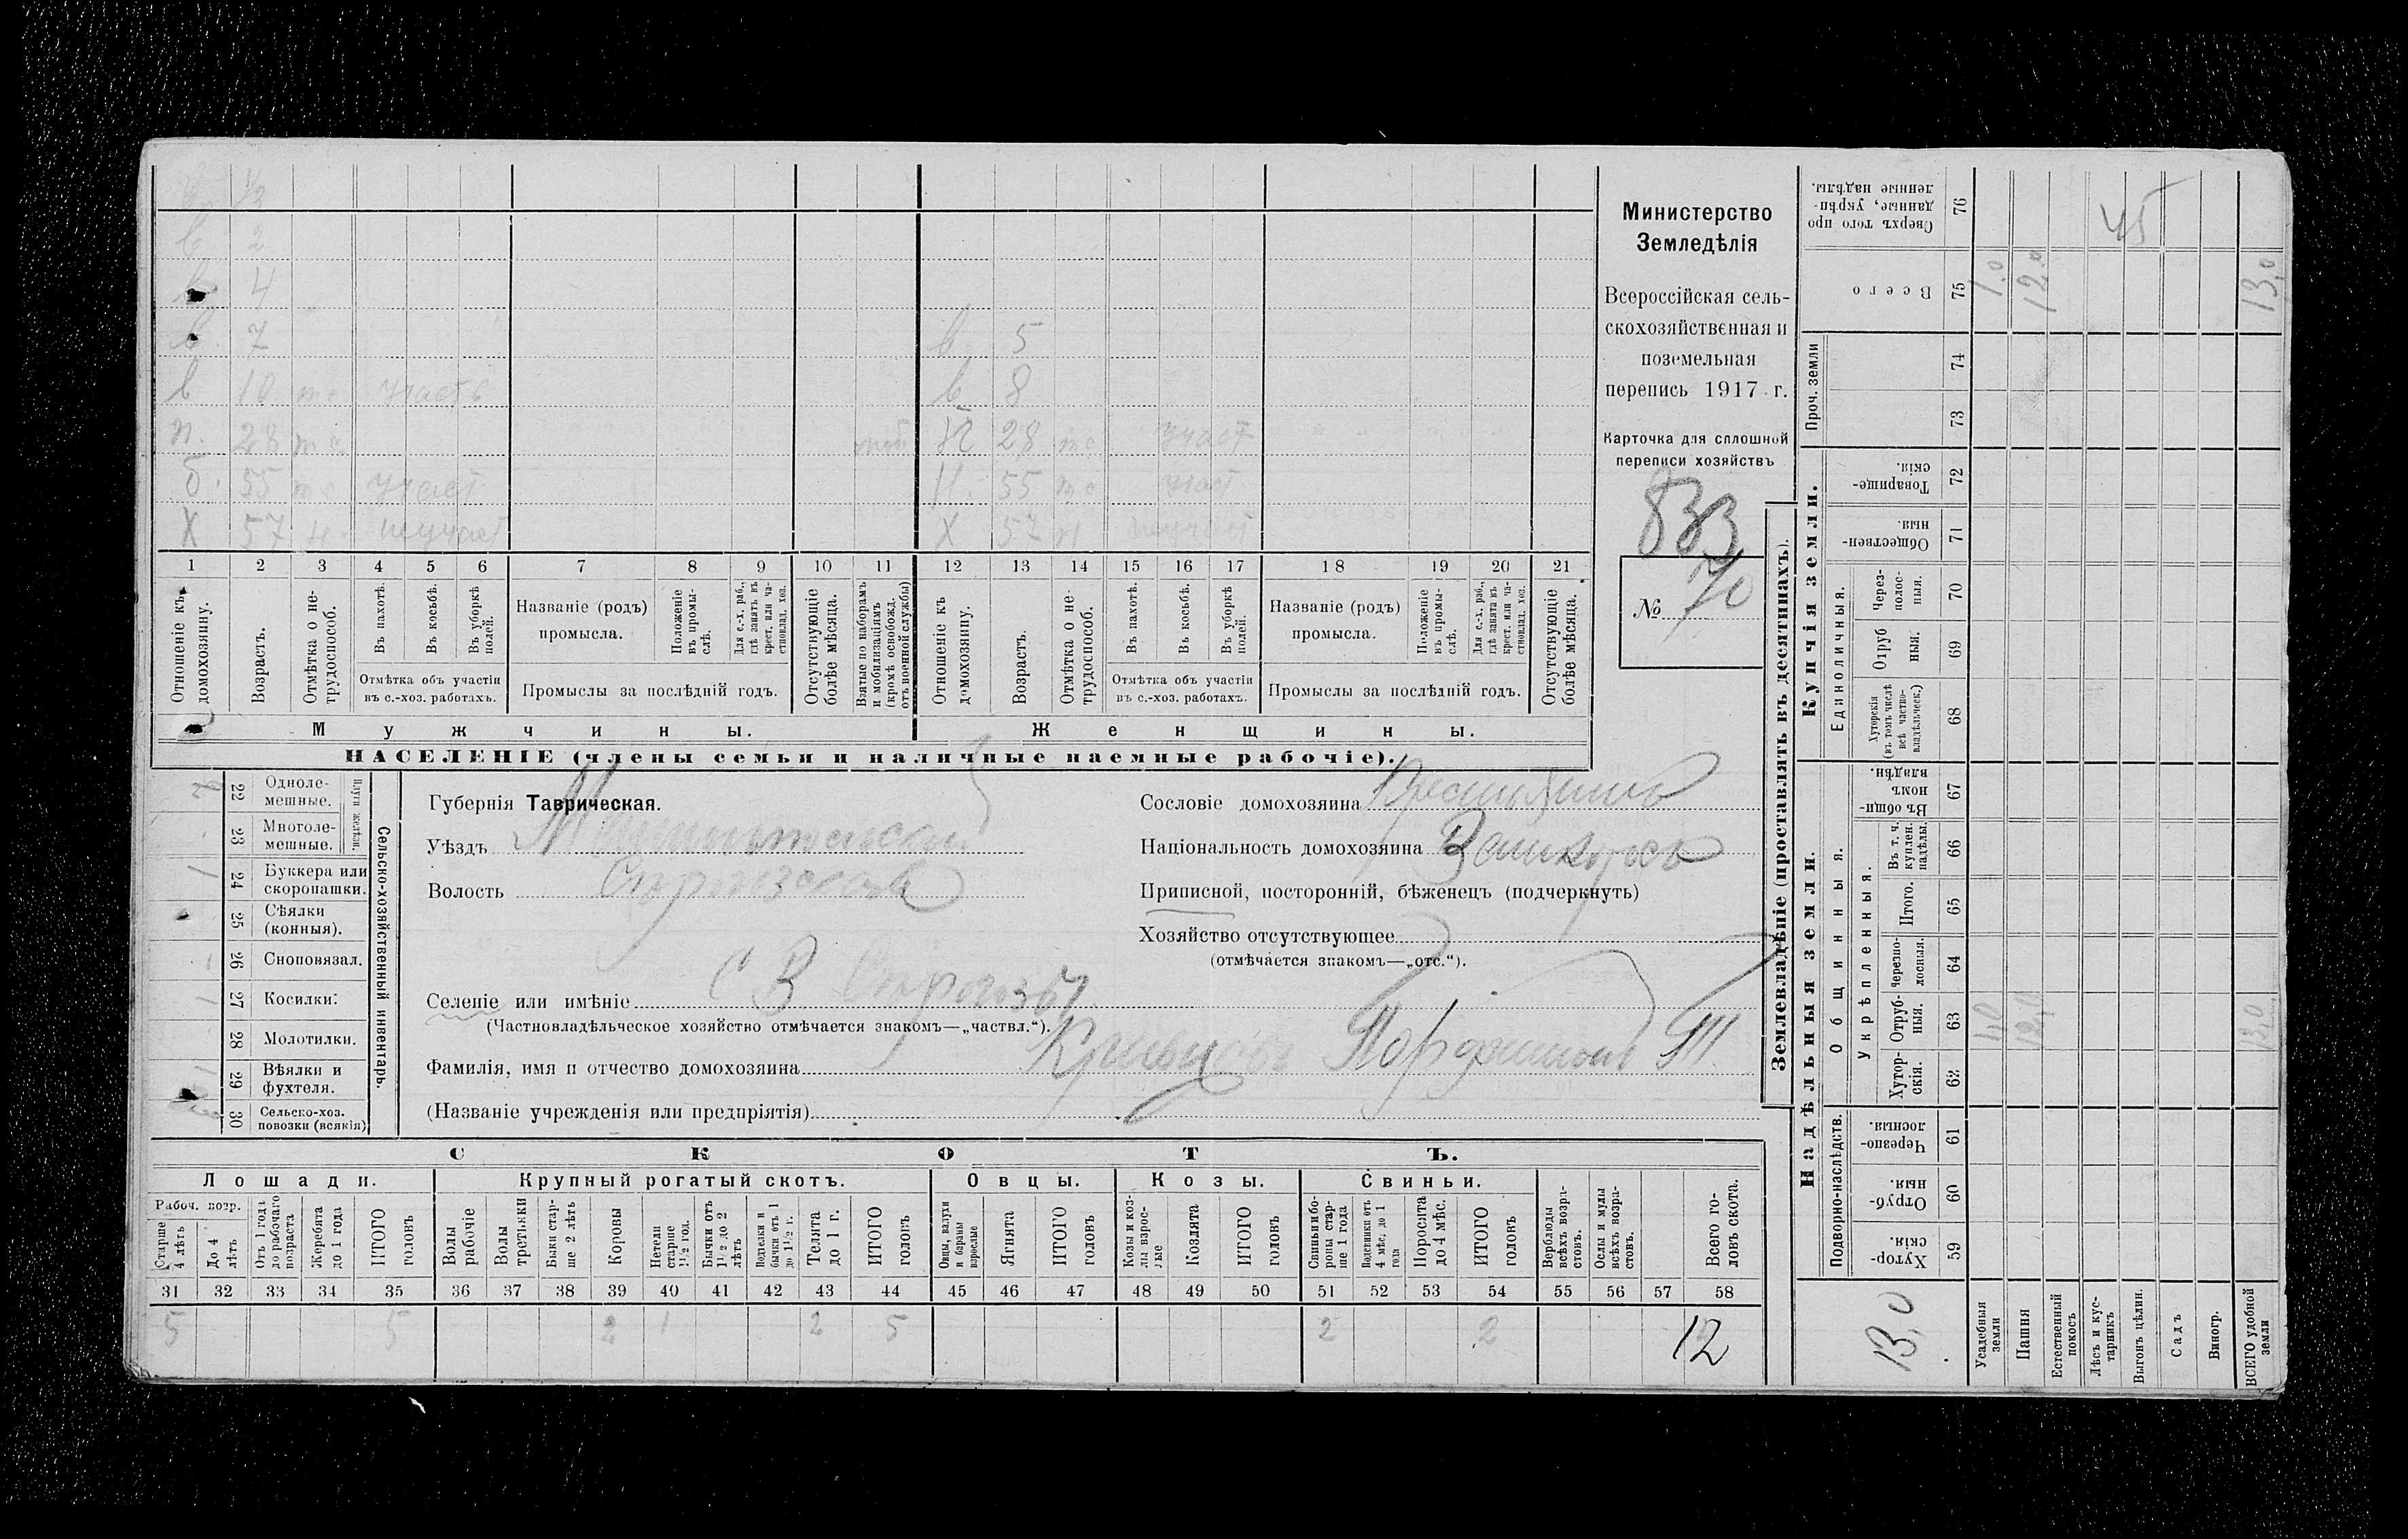 в 2
4
в. 7
в 10 участь
в 5
в 8
п. 28
28 участ
б. 55 участ
55 участ
Х 57 н. неучаст
Х 57 н неучаст
1 2 3 4 5 6 7 8 9 10 11 12 13 14 15 16 17 18 19 20 21
Отношеніе къ домохозяину.
Возрастъ.
Отмѣтка о не-трудоспособ.
Въ пахотѣ.
Въ косьбѣ.
Въ уборкѣ полей.
Отмѣтка объ участіи въ с.-хоз. работахъ.
Названіе (родъ) промысла.
Положеніе въ промы-слѣ.
Для с.-х. раб., гдѣ занятъ въ крест. или ча-стновлад. хоз.
Промыслы за послѣдній годъ.
Отсутствующіе болѣе мѣсяца.
Взятые по наборамъ и мобилизаціямъ (кромѣ освобожд. отъ военной службы)
Отношеніе къ домохозяину.
Возрастъ.
Отмѣтка о не-трудоспособ.
Въ пахотѣ.
Въ косьбѣ.
Въ уборкѣ полей.
Отмѣтка объ участіи въ с.-хоз. работахъ.
Названіе (родъ) промысла.
Положеніе въ промы-слѣ.
Для с.-х. раб., гдѣ занята въ крест. или ча-стновлад. хоз.
Промыслы за послѣдній годъ.
Отсутствующіе болѣе мѣсяца.
Мужчины. Женщины.
НАСЕЛЕНІЕ (члены семьи и наличные наемные рабочіе).
Министерство
Земледѣлія
Всероссійская сель-
скохозяйственная и
поземельная
перепись 1917 г.
Карточка для сплошной
переписи хозяйствъ
833
№ 70
22 Одноле-мешные.
23 Многоле-мешные.
Плуги желѣзн.
24 Буккера или скоропашки.
25 Сѣялки (конныя).
26 Сноповязал.
27 Косилки.
28 Молотилки.
29 Вѣялки и фухтеля.
30 Сельско-хоз. повозки (всякія)
Сельско-хозяйственный инвентарь.
Губернія Таврическая.
Уѣздъ Мелитопольскій
Волость
Селеніе или имѣніе С В Сирогозы
(Частновладѣльческое хозяйство отмѣчается знакомъ—„частвл.“).
Фамилія, имя и отчество домохозяина Кривцовъ
(Названіе учрежденія или предпріятія)
Сословіе домохозяина Крестьянинъ
Національность домохозяина Великороссъ
Приписной, посторонній, бѣженецъ (подчеркнуть)
Хозяйство отсутствующее
(отмѣчается знакомъ—„отс.“).
СКОТЪ.
Лошади. Крупный рогатый скотъ. Овцы. Козы. Свиньи.
Рабоч. возр.
Старше 4 лѣтъ
До 4 лѣтъ
Отъ 1 года до рабочаго возраста
Жеребята до 1 года
ИТОГО головъ
Волы рабочіе
Волы третьяки
Быки стар-ше 2 лѣтъ
Коровы
Нетели старше 1½ год.
Бычки отъ 1½ до 2 лѣтъ
Подтелки и бычки отъ 1 до 1½ г.
Телята до 1 г.
ИТОГО головъ
Овцы, валухи и бараны взрослые
Ягнята
ИТОГО головъ
Козы и коз-лы взрос-лые
Козлята
ИТОГО головъ
Свиньи и бо-ровы стар-ше 1 года
Подсвинки отъ 4 мѣс. до 1 года
Поросята до 4 мѣс.
ИТОГО головъ
Верблюды всѣхъ возра-стовъ.
Ослы и мулы всѣхъ возра-стовъ.
Всего го-ловъ скота.
31 32 33 34 35 36 37 38 39 40 41 42 43 44 45 46 47 48 49 50 51 52 53 54 55 56 57 58
5 5 2 1 2 5 2 2 12
Землевладѣніе (проставлять въ десятинахъ).
Надѣльныя земли. Купчія земли.
Сверхъ того про данные, укрѣп-ленные надѣлы. 76
45
Всего 75
1.0 12.0 13,0
Проч. земли
74
73
Товарище-скія. 72
Обществен-ныя. 71
Единоличныя.
Через-полос-ныя. 70
Отруб ныя. 69
Хуторскія (въ томъ числѣ всѣ частно-владѣльческ.) 68
Общинныя.
Въ общин-номъ владѣн. 67
Укрѣпленныя.
Въ т. ч. куплен. надѣлы. 66
Итого. 65
Черезпо-лосныя. 64
Отруб-ныя. 63
1,0 12,0 13,0
Хутор-скія. 62
Подворно-наслѣдств.
Черезпо-лосныя. 61
Отруб-ныя. 60
Хутор-скія. 59
13,0
Усадебныя земли
Пашня
Естественный покосъ
Лѣсъ и кус-тарникъ
Выгонъ цѣлин.
Садъ
Виногр.
ВСЕГО удобной земли